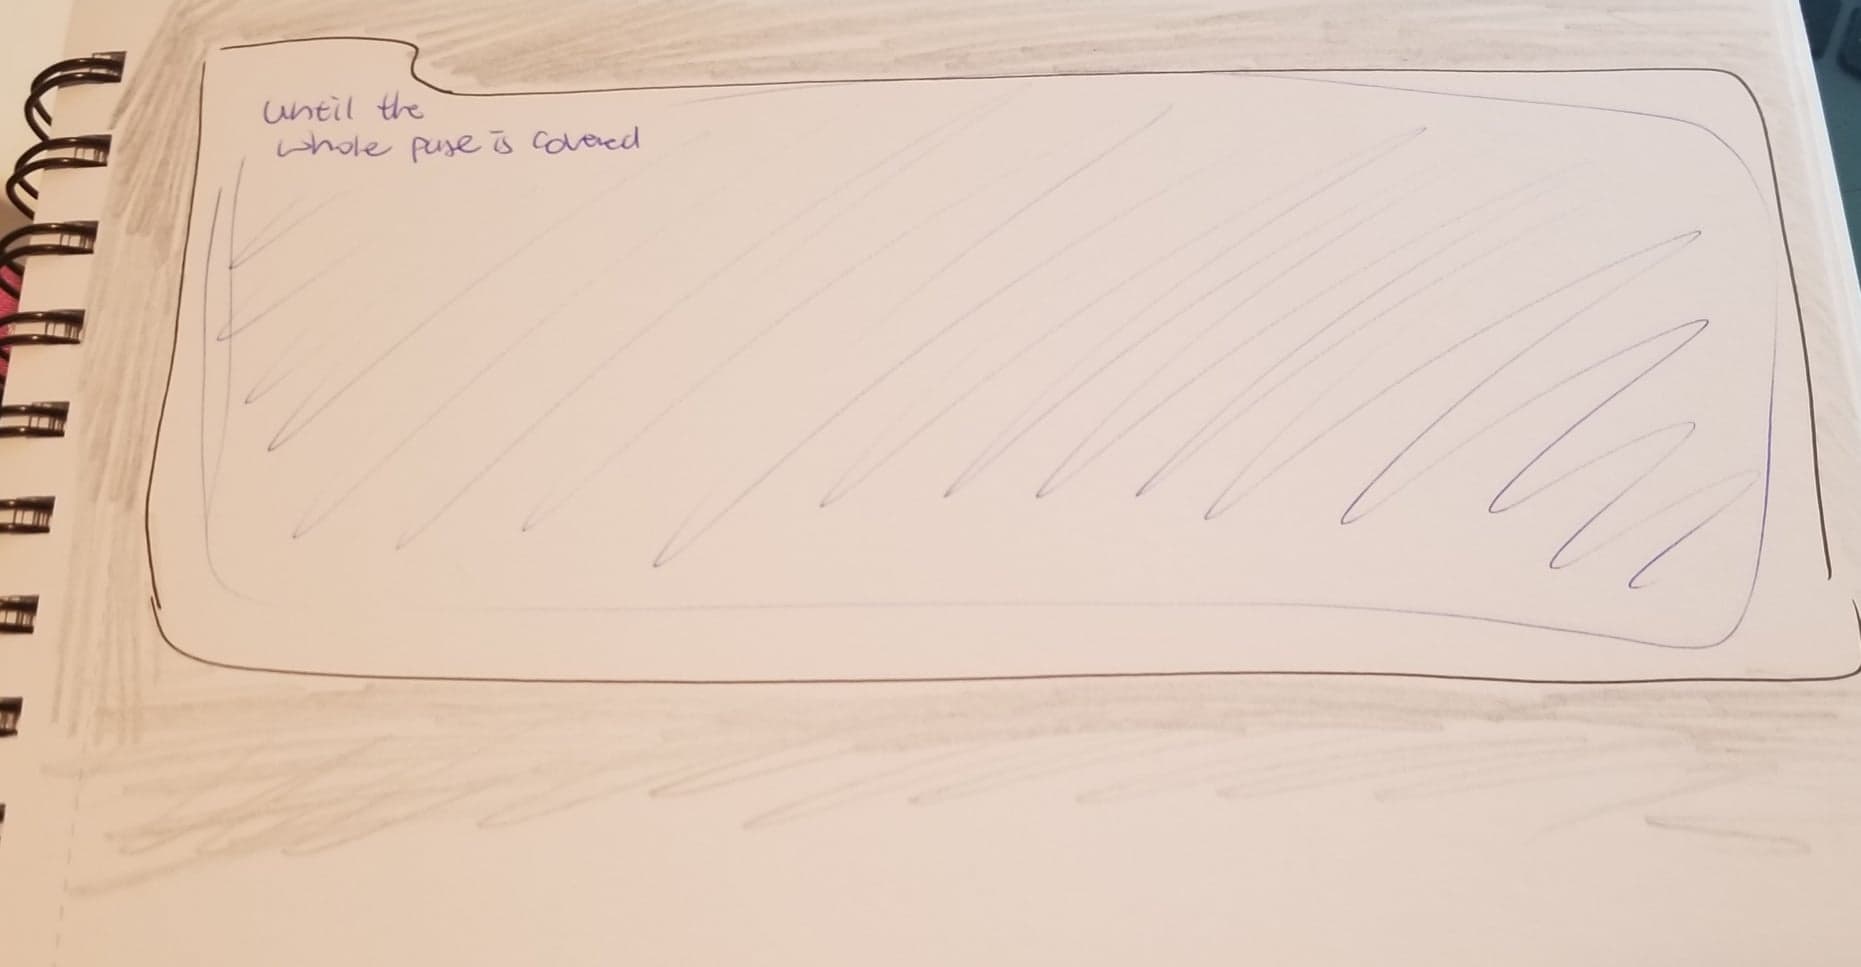 until the
whole page is covered